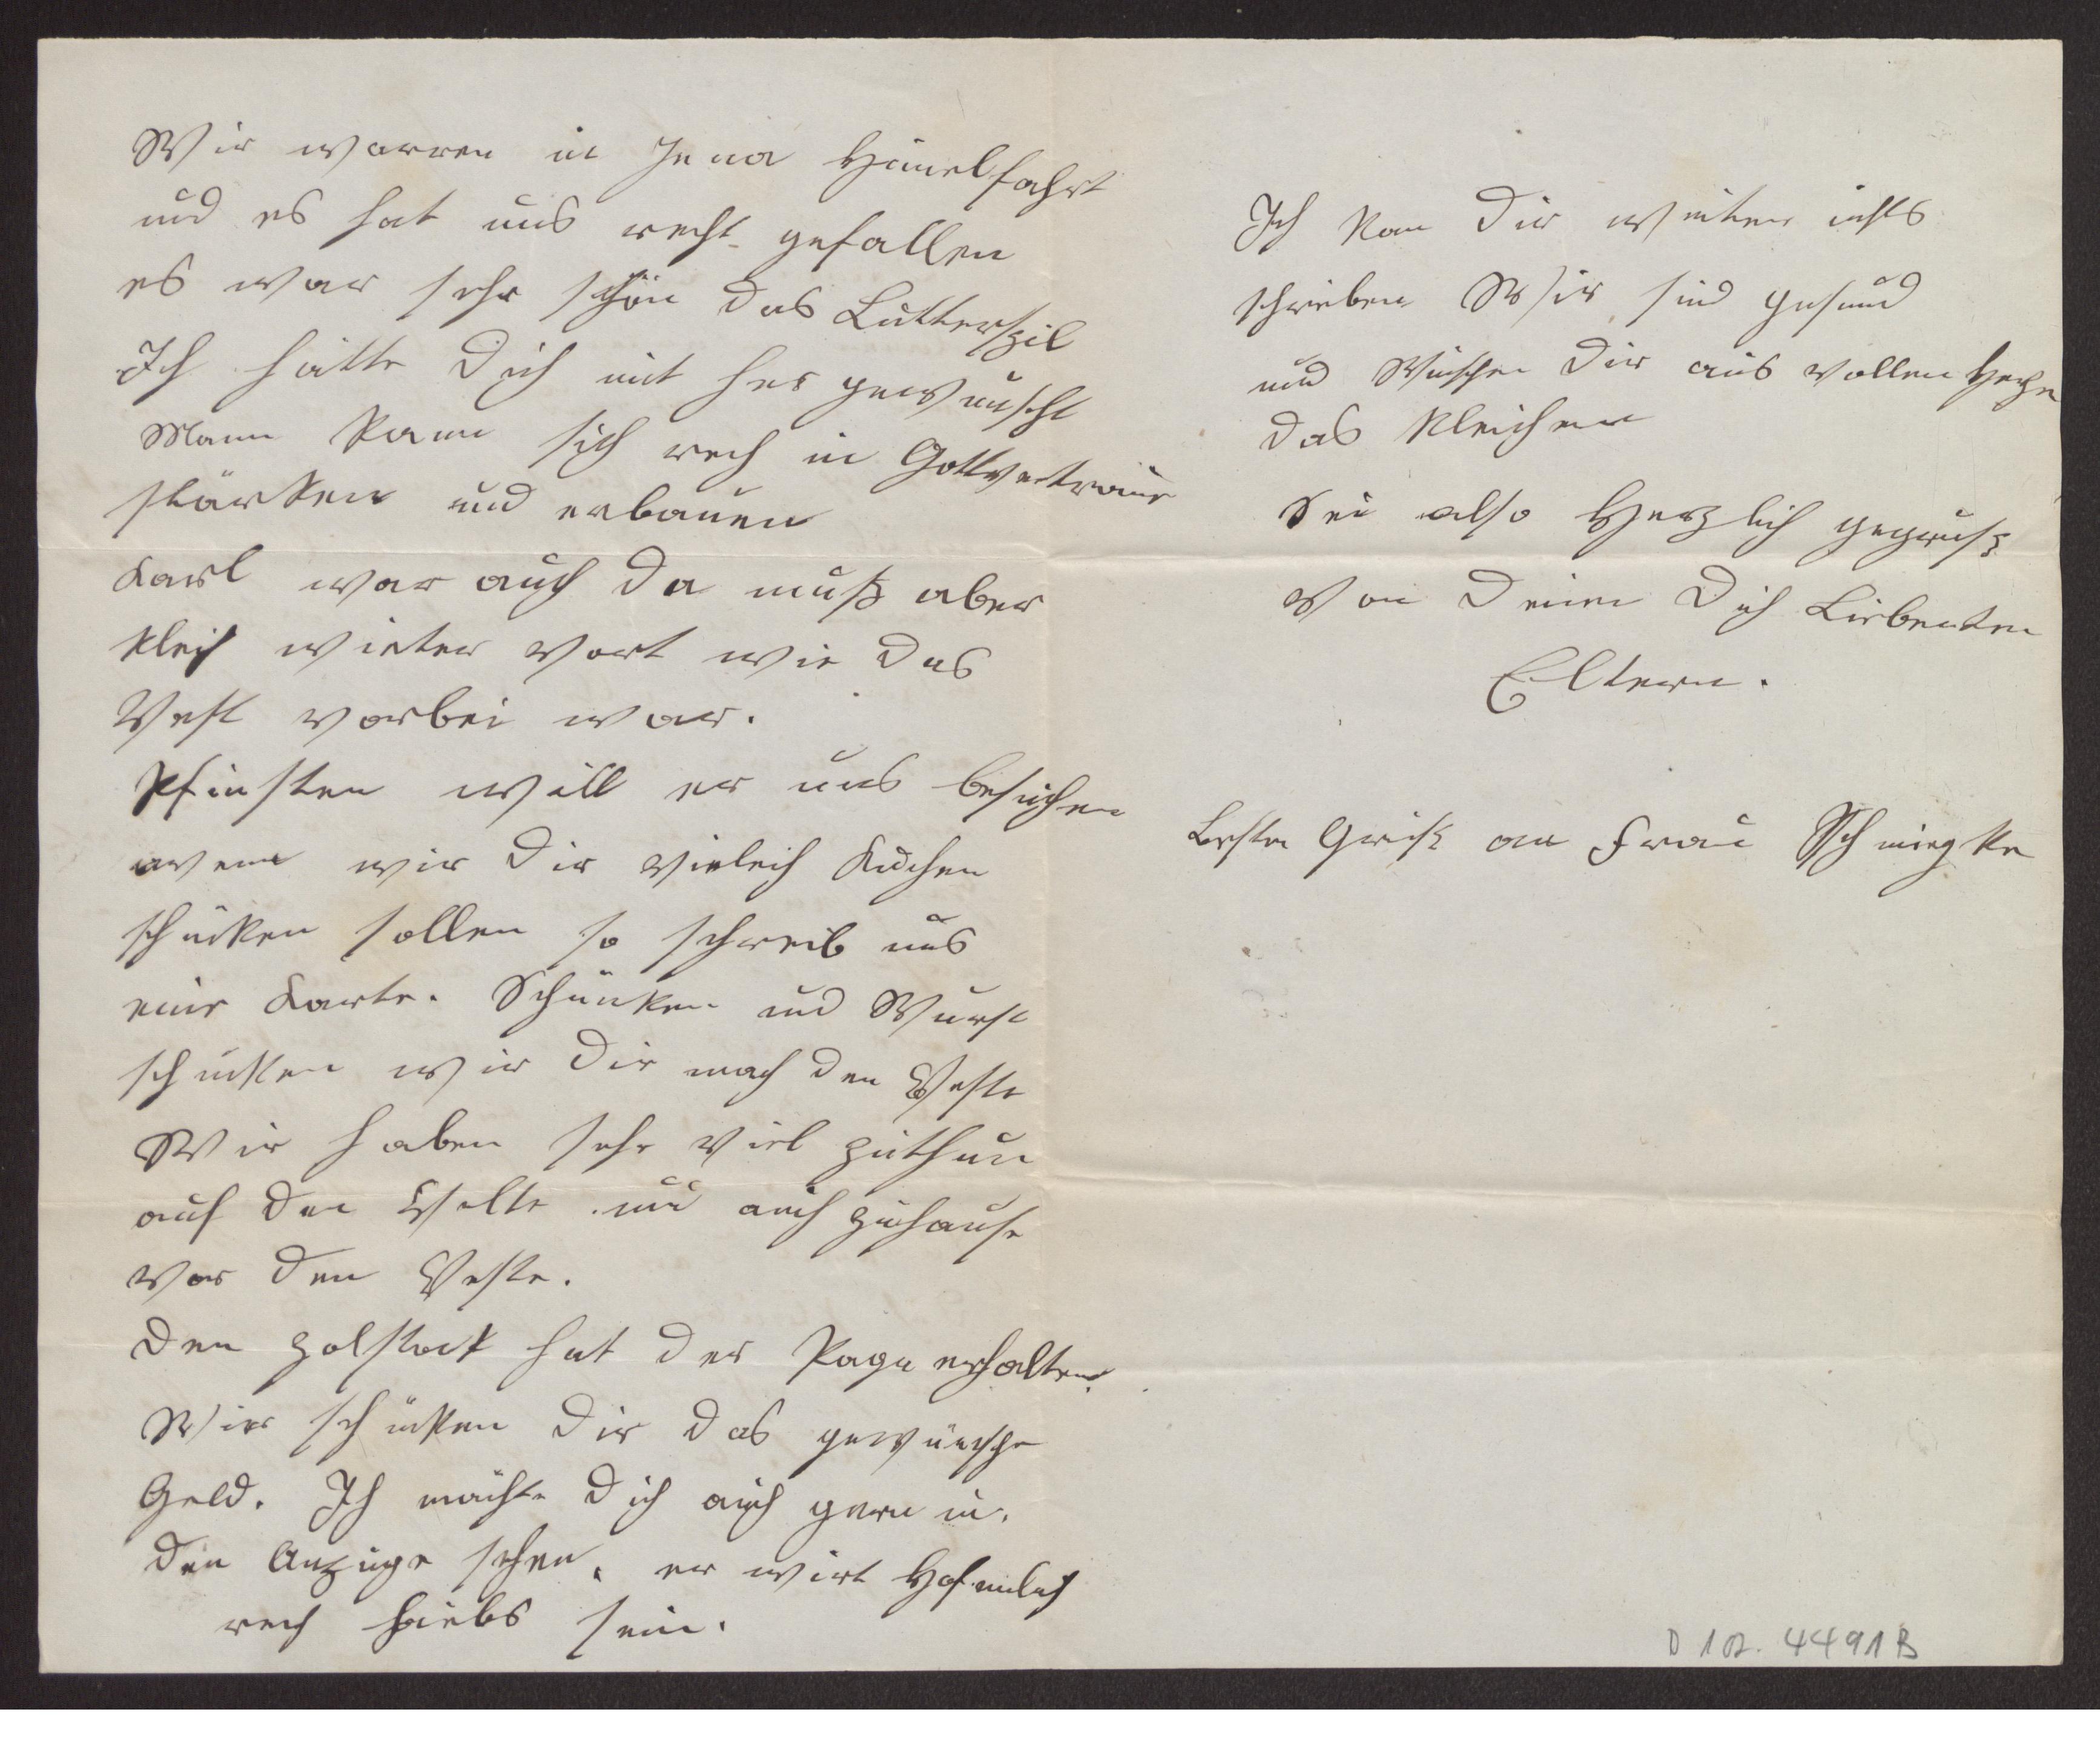 Wir warren in Jena Himelfahrt
und es hat uns recht gefallen
es war sehr schön das Lutterspil
Ich hätte Dich mit her gewunscht
Mann kann sich rech in Gottvertraue
stärken und erbauen
Karl war auch da muß aber
kleich wieter vort wie das
Vest vorbei war.
Pfinsten will er uns besuchen
wenn wir Dir vieleich Kuchen
schücken sollen so schreib uns
eine Karte. Schünken und Wurst
schücken wir Dir nach den Veste
Wir haben sehr viel zuthun
auf den Velte und auch zuhause
vor den Veste.
Den Zolstock hat der Page erhalten.
Wir schücken Dir das gewünsche
Geld. Ich möchte Dich auch gern in
den Anzuge sehen, er wirt Hofenlich
rech hiebs sein.
Ich kan Dir weiter ichts
schreiben Wir sind gesund
und Wüschen Dir aus vollen Herzen
das kleichen
Sei also Herzlich gegrüßt
von Deinen Dich Liebenten
Eltern.
Besten Gruß an Frau Schmiegke
D 102. 4491 B